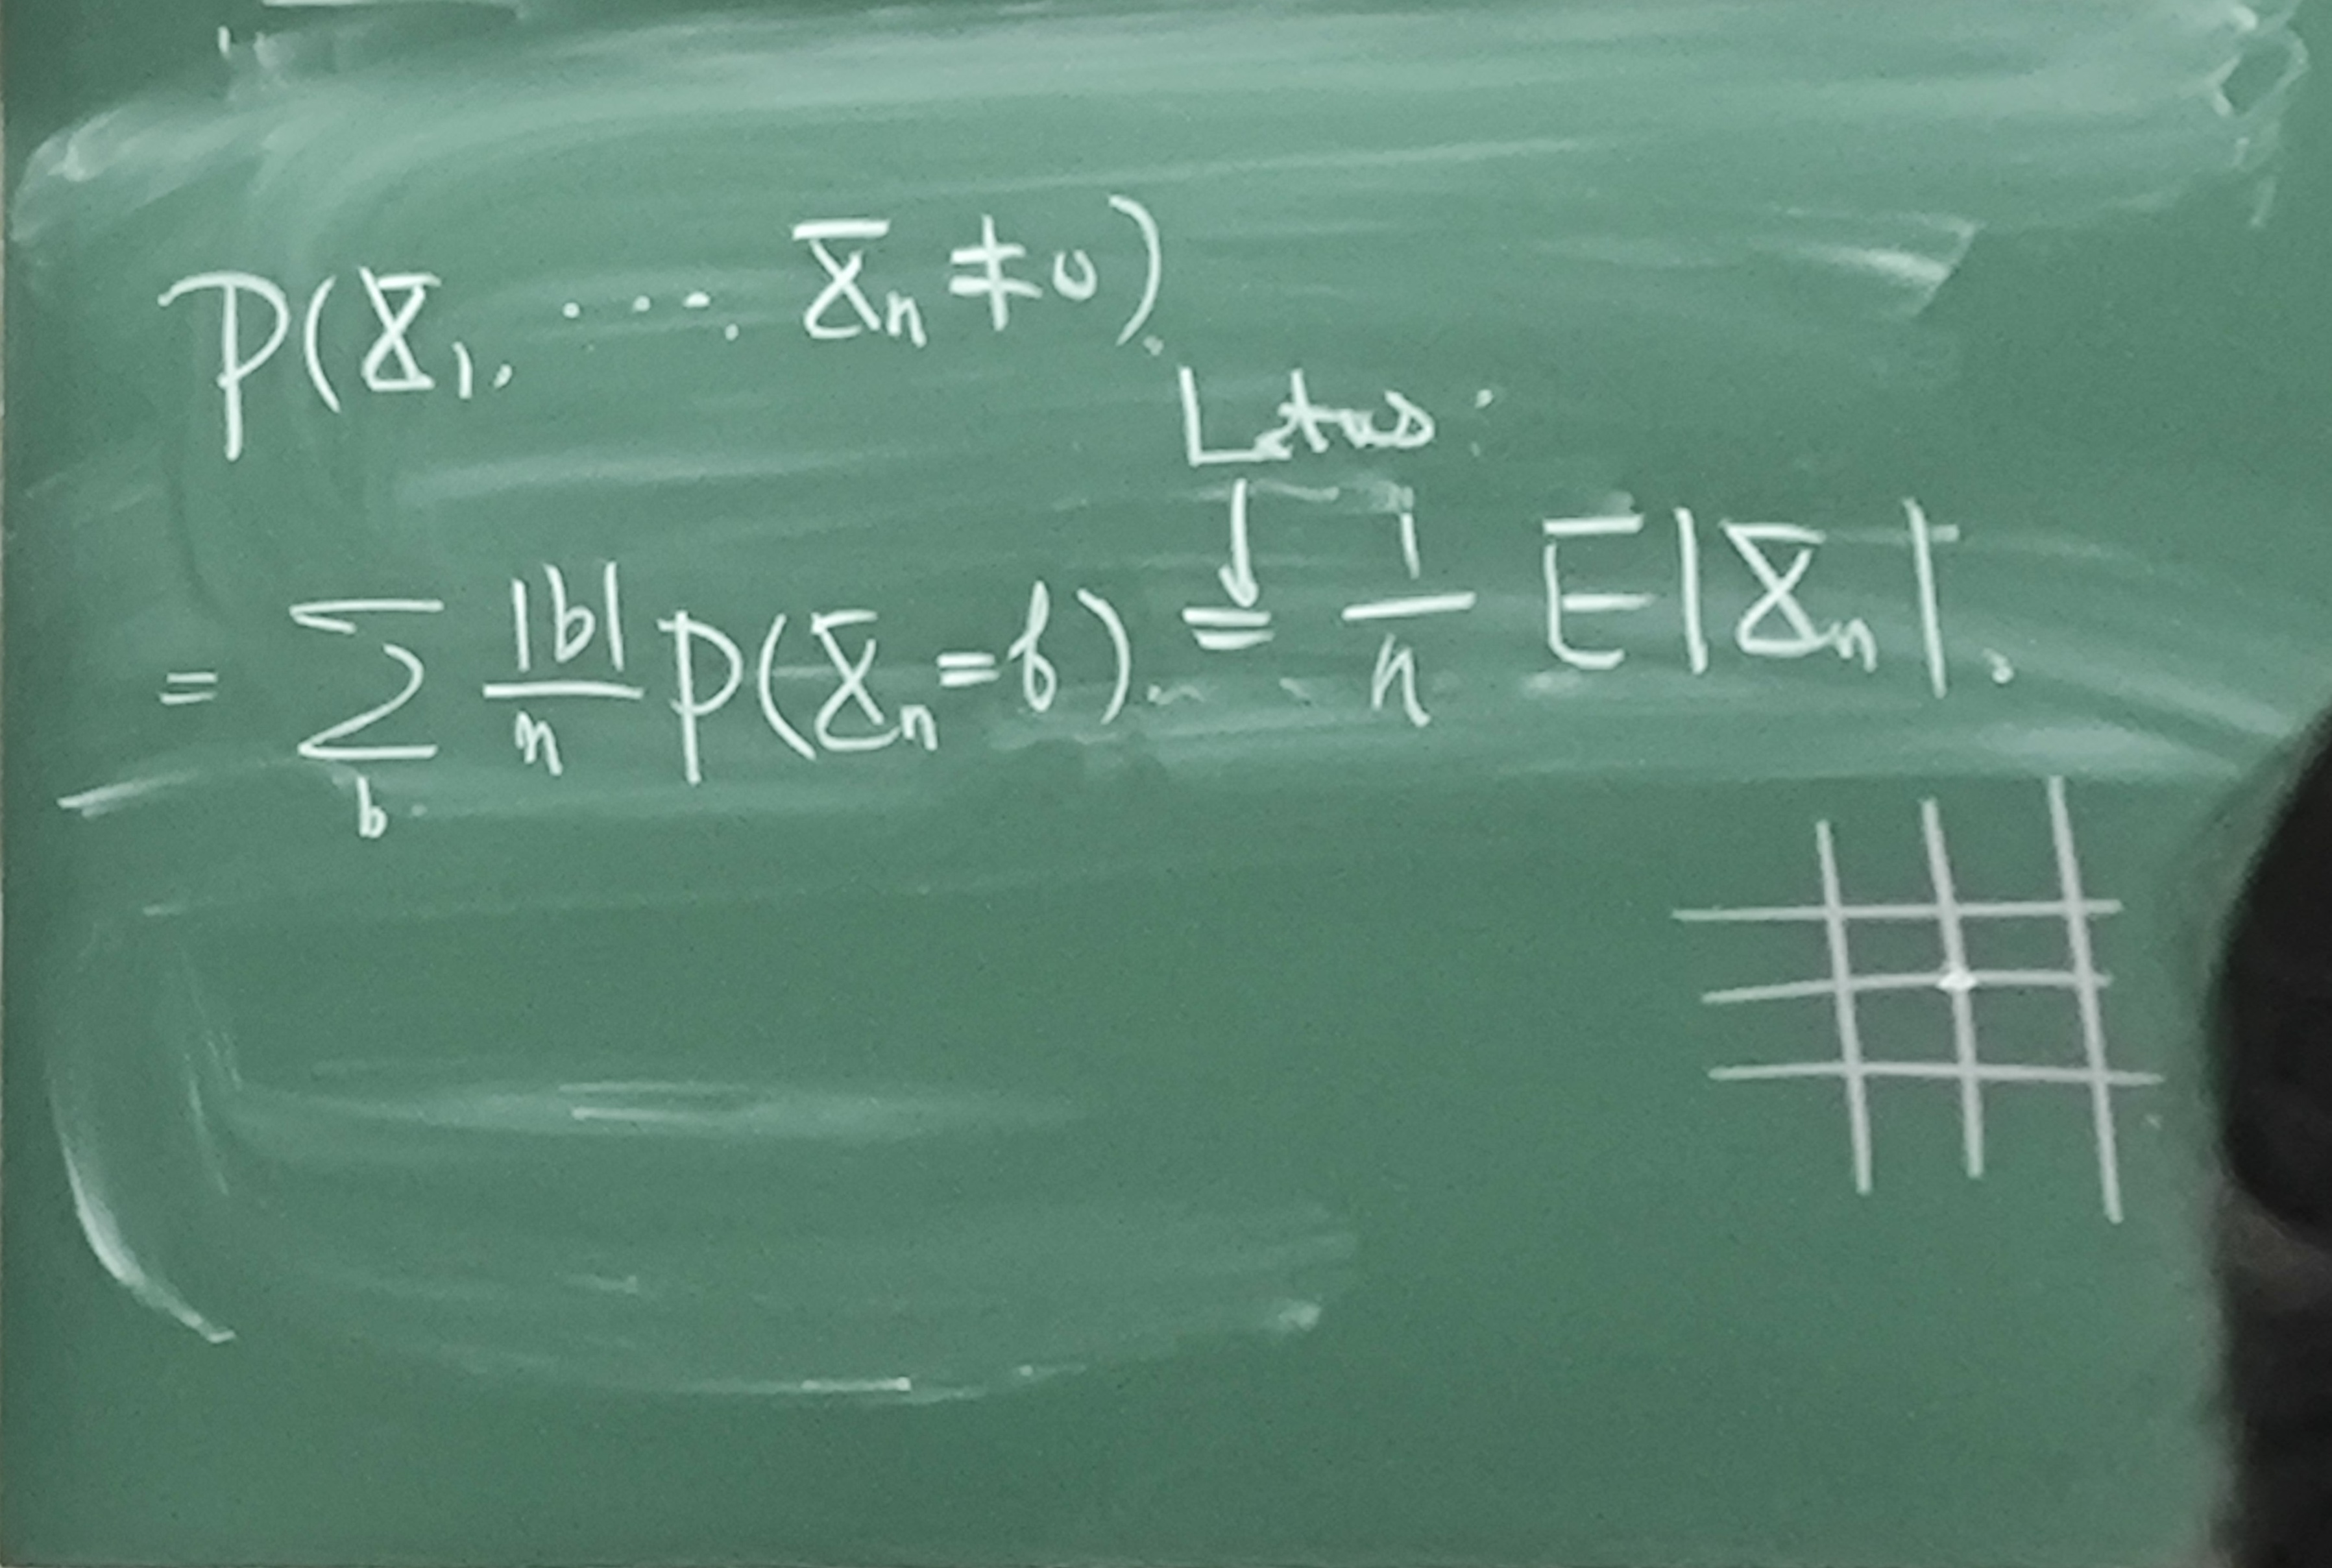 P(X₁, ..... Xₙ ≠ 0).
Lotus:
= ∑_b |b|/n P(Xₙ = b). = 1/n E|Xₙ|.